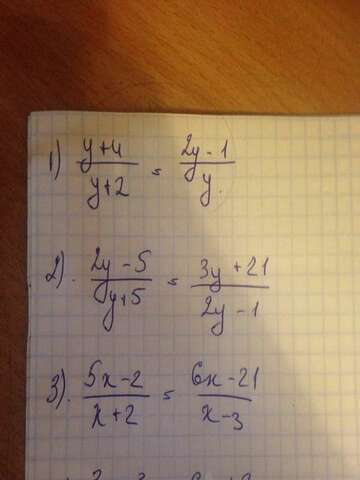 1) (y+4)/(y+2) = (2y-1)/y
2). (2y-5)/(y+5) = (3y+21)/(2y-1)
3). (5x-2)/(x+2) = (6x-21)/(x-3)